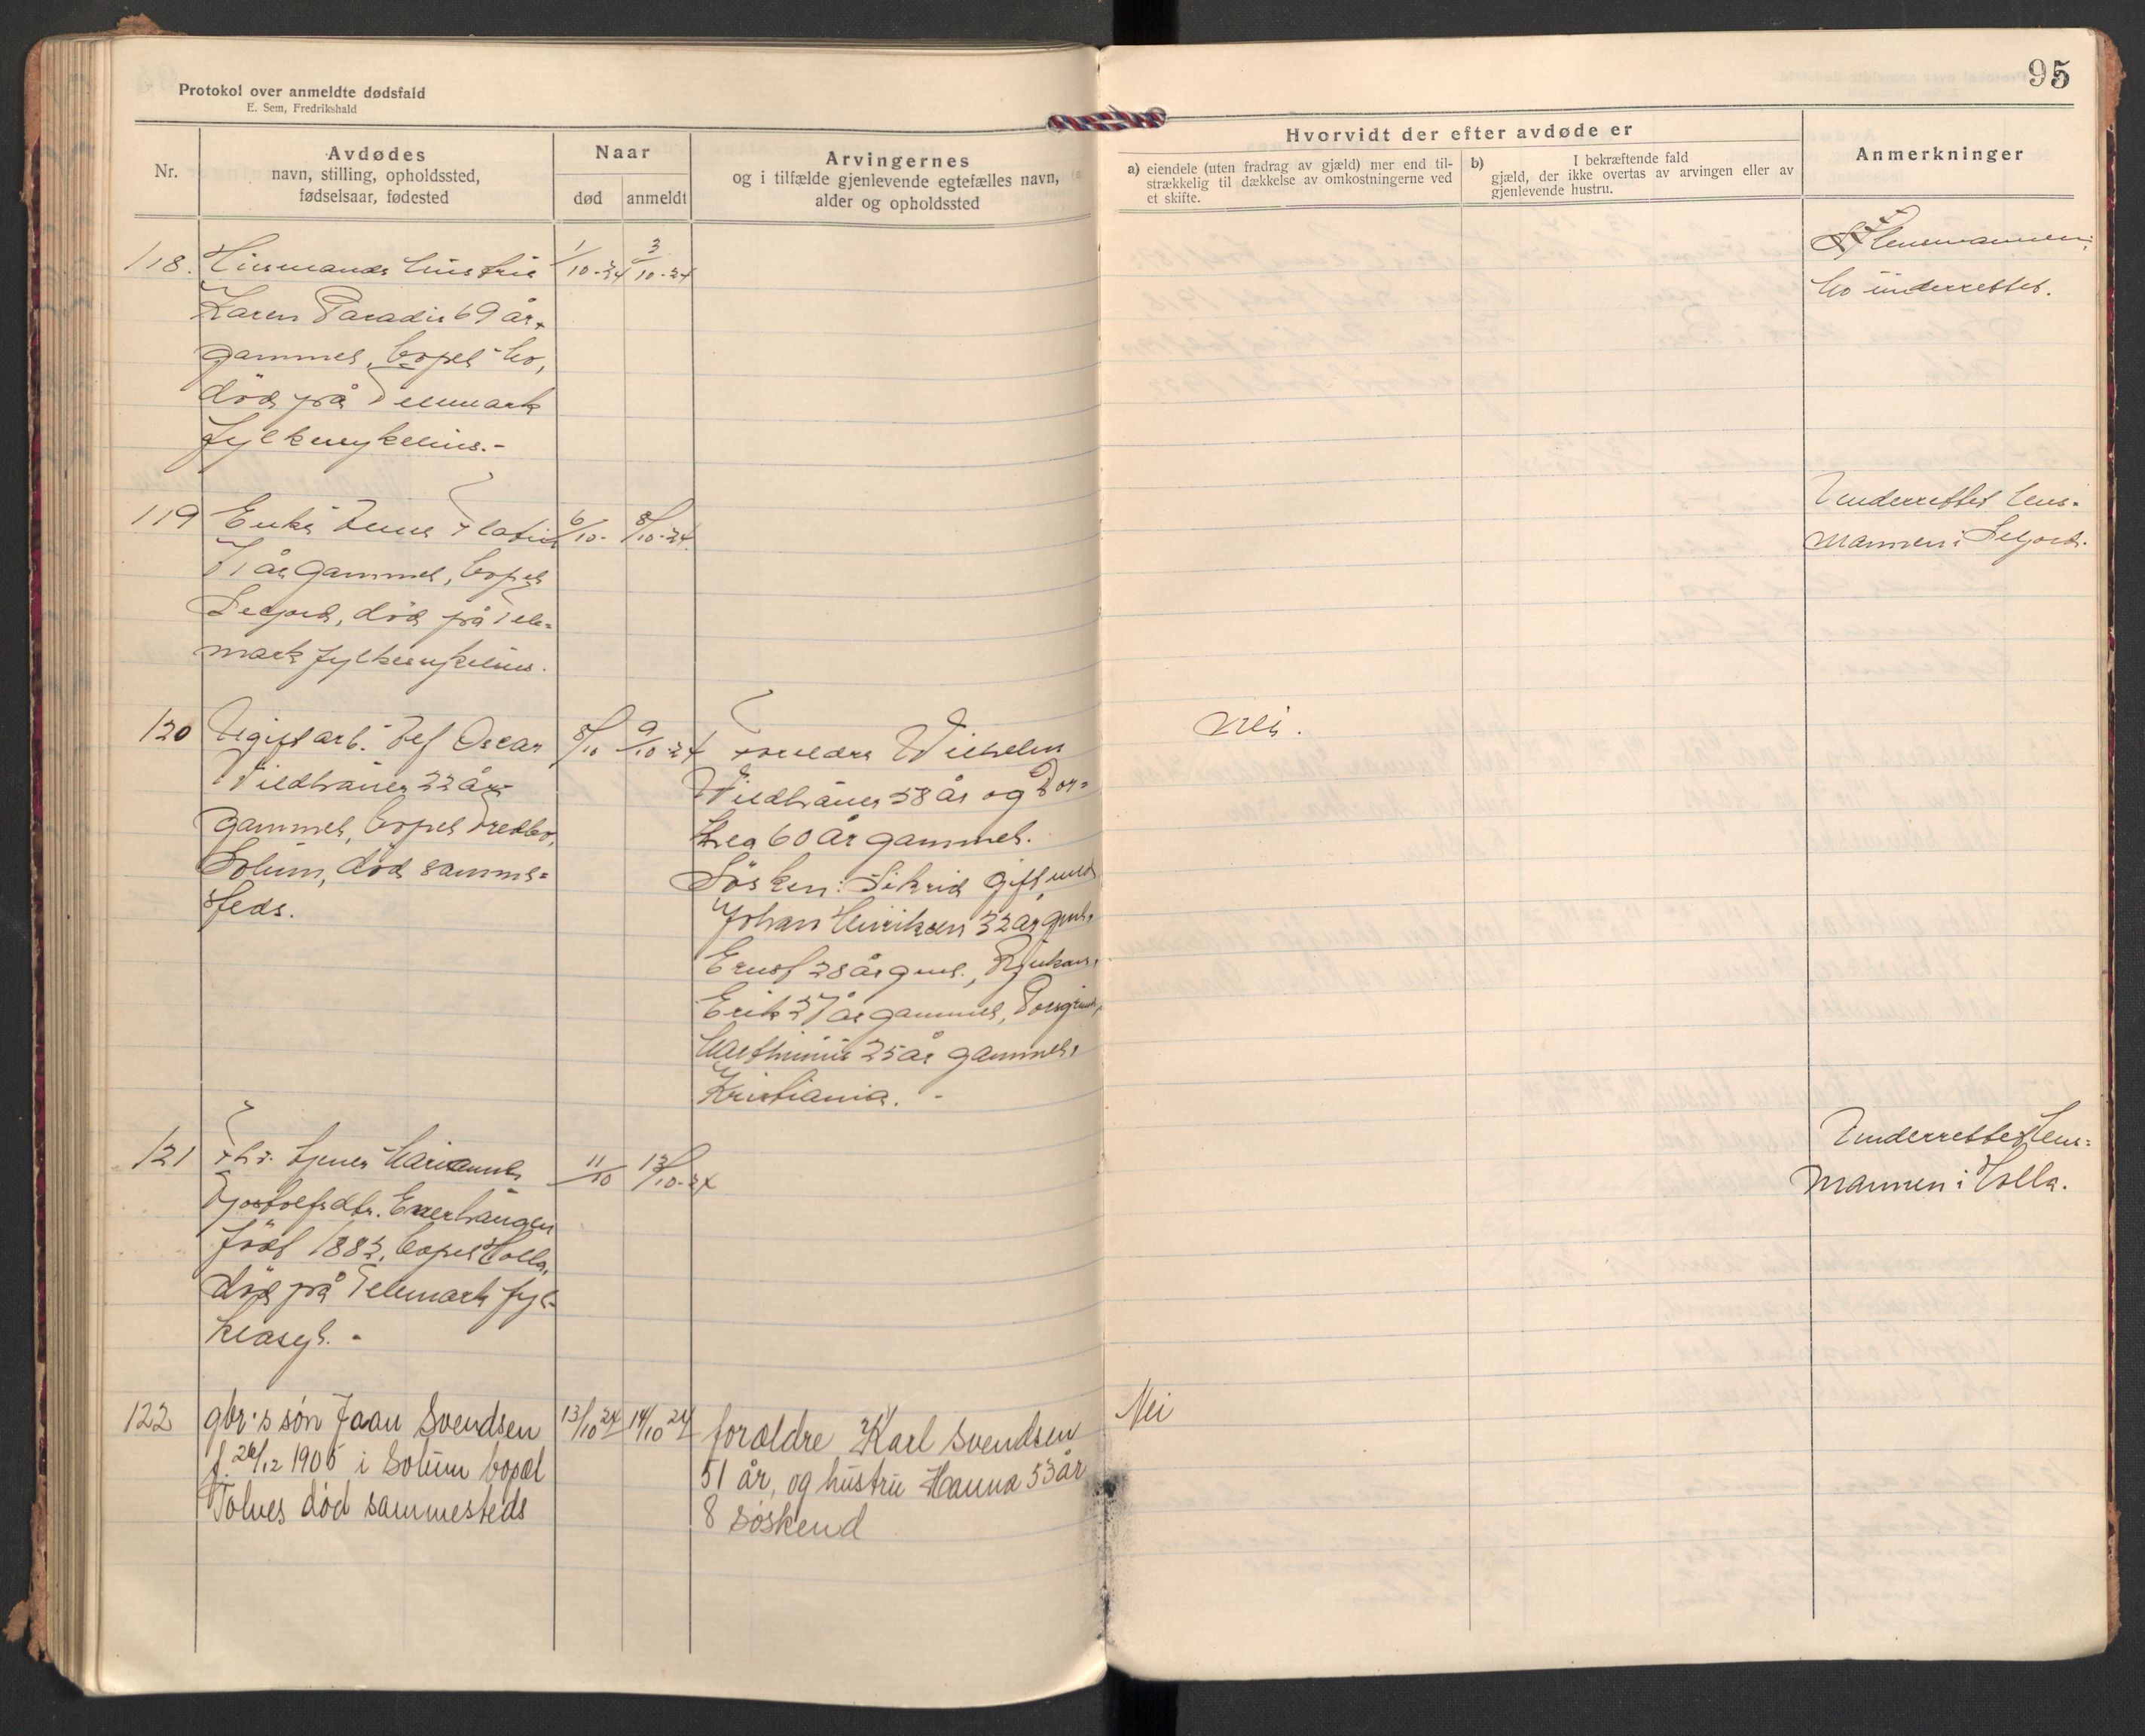 Protokol over anmeldte dødsfald
E. Sem, Fredrikshald
95
Nr.
Avdødes
navn, stilling, opholdssted,
fødselsaar, fødested
Naar
død
anmeldt
Arvingernes
og i tilfælde gjenlevende egtefælles navn,
alder og opholdssted
Hvorvidt der efter avdøde er
a) eiendele (uten fradrag av gjæld) mer end til-
strækkelig til dækkelse av omkostningerne ved
et skifte.
b) I bekræftende fald
gjæld, der ikke overtas av arvingen eller av
gjenlevende hustru.
Anmerkninger
118. Husmands hustru 1/10-24 3/10-24
Karen Paradis 69 år
gammel, bopel Bø,
död på Telemark
fylkesykehus.-
Lensmannen i
Bø underrettet.
119 Enke Anne Flatin 6/10- 8/10-24.
71 år gammel, bopel
Seljord, död på Tele-
mark fylkesykehus.
Underrettet lens-
mannen i Seljord.
120 Ugift arb. Leif Oscar 8/10 9/10-24
22 år
gammel, bopel
Solum, död samme-
steds.
Foreldre Wilhelm
58 år og Dor-
thea 60 år gammel.
Sösken: Sigrid gift med
Johan Henriksen 32 år gml.
Ernst 28 år gml., Rjukan,
Erik 27 år gammel, Porsgrund,
Marthinius 25 år gammel,
Kristiania. -
Nei.
121 11/10 13/10-24
född 1882, bopel Holla,
död på Telemark fyl-
kessyk. -
Underrettet Lens-
mannen i Holla.
122 gbr's søn Jaan Svendsen 13/10 24 14/10 24
f. 26/12 1905 i Solum bopæl
Tolnes død sammesteds
forældre Karl Svendsen
51 år, og hustru Hanna 53 år
8 søskend
Nei